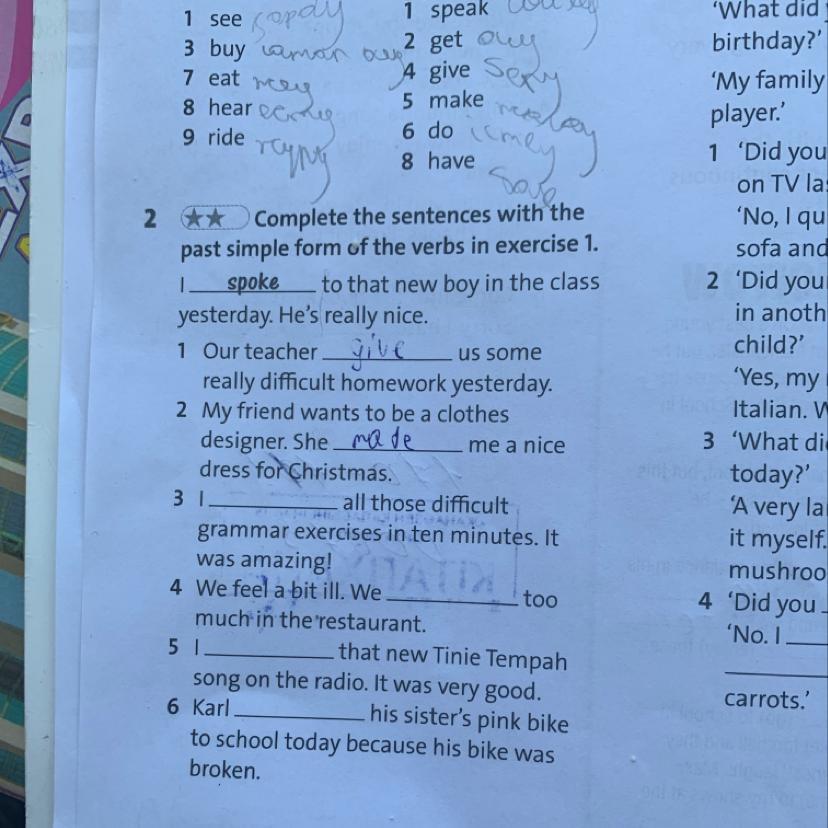 1 see
3 buy
7 eat
8 hear
9 ride
1 speak
2 get
4 give
5 make
6 do
8 have
2 ★★ Complete the sentences with the
past simple form of the verbs in exercise 1.
I spoke to that new boy in the class
yesterday. He's really nice.
1 Our teacher give us some
really difficult homework yesterday.
2 My friend wants to be a clothes
designer. She made me a nice
dress for Christmas.
3 I ________ all those difficult
grammar exercises in ten minutes. It
was amazing!
4 We feel a bit ill. We ________ too
much in the restaurant.
5 I ________ that new Tinie Tempah
song on the radio. It was very good.
6 Karl ________ his sister's pink bike
to school today because his bike was
broken.
'What did
birthday?'
'My family
player.'
1 'Did you
on TV la
'No, I qu
sofa and
2 'Did you
in anoth
child?'
'Yes, my
Italian. W
3 'What di
today?'
'A very la
it myself.
mushroo
4 'Did you
'No. I ____
carrots.'